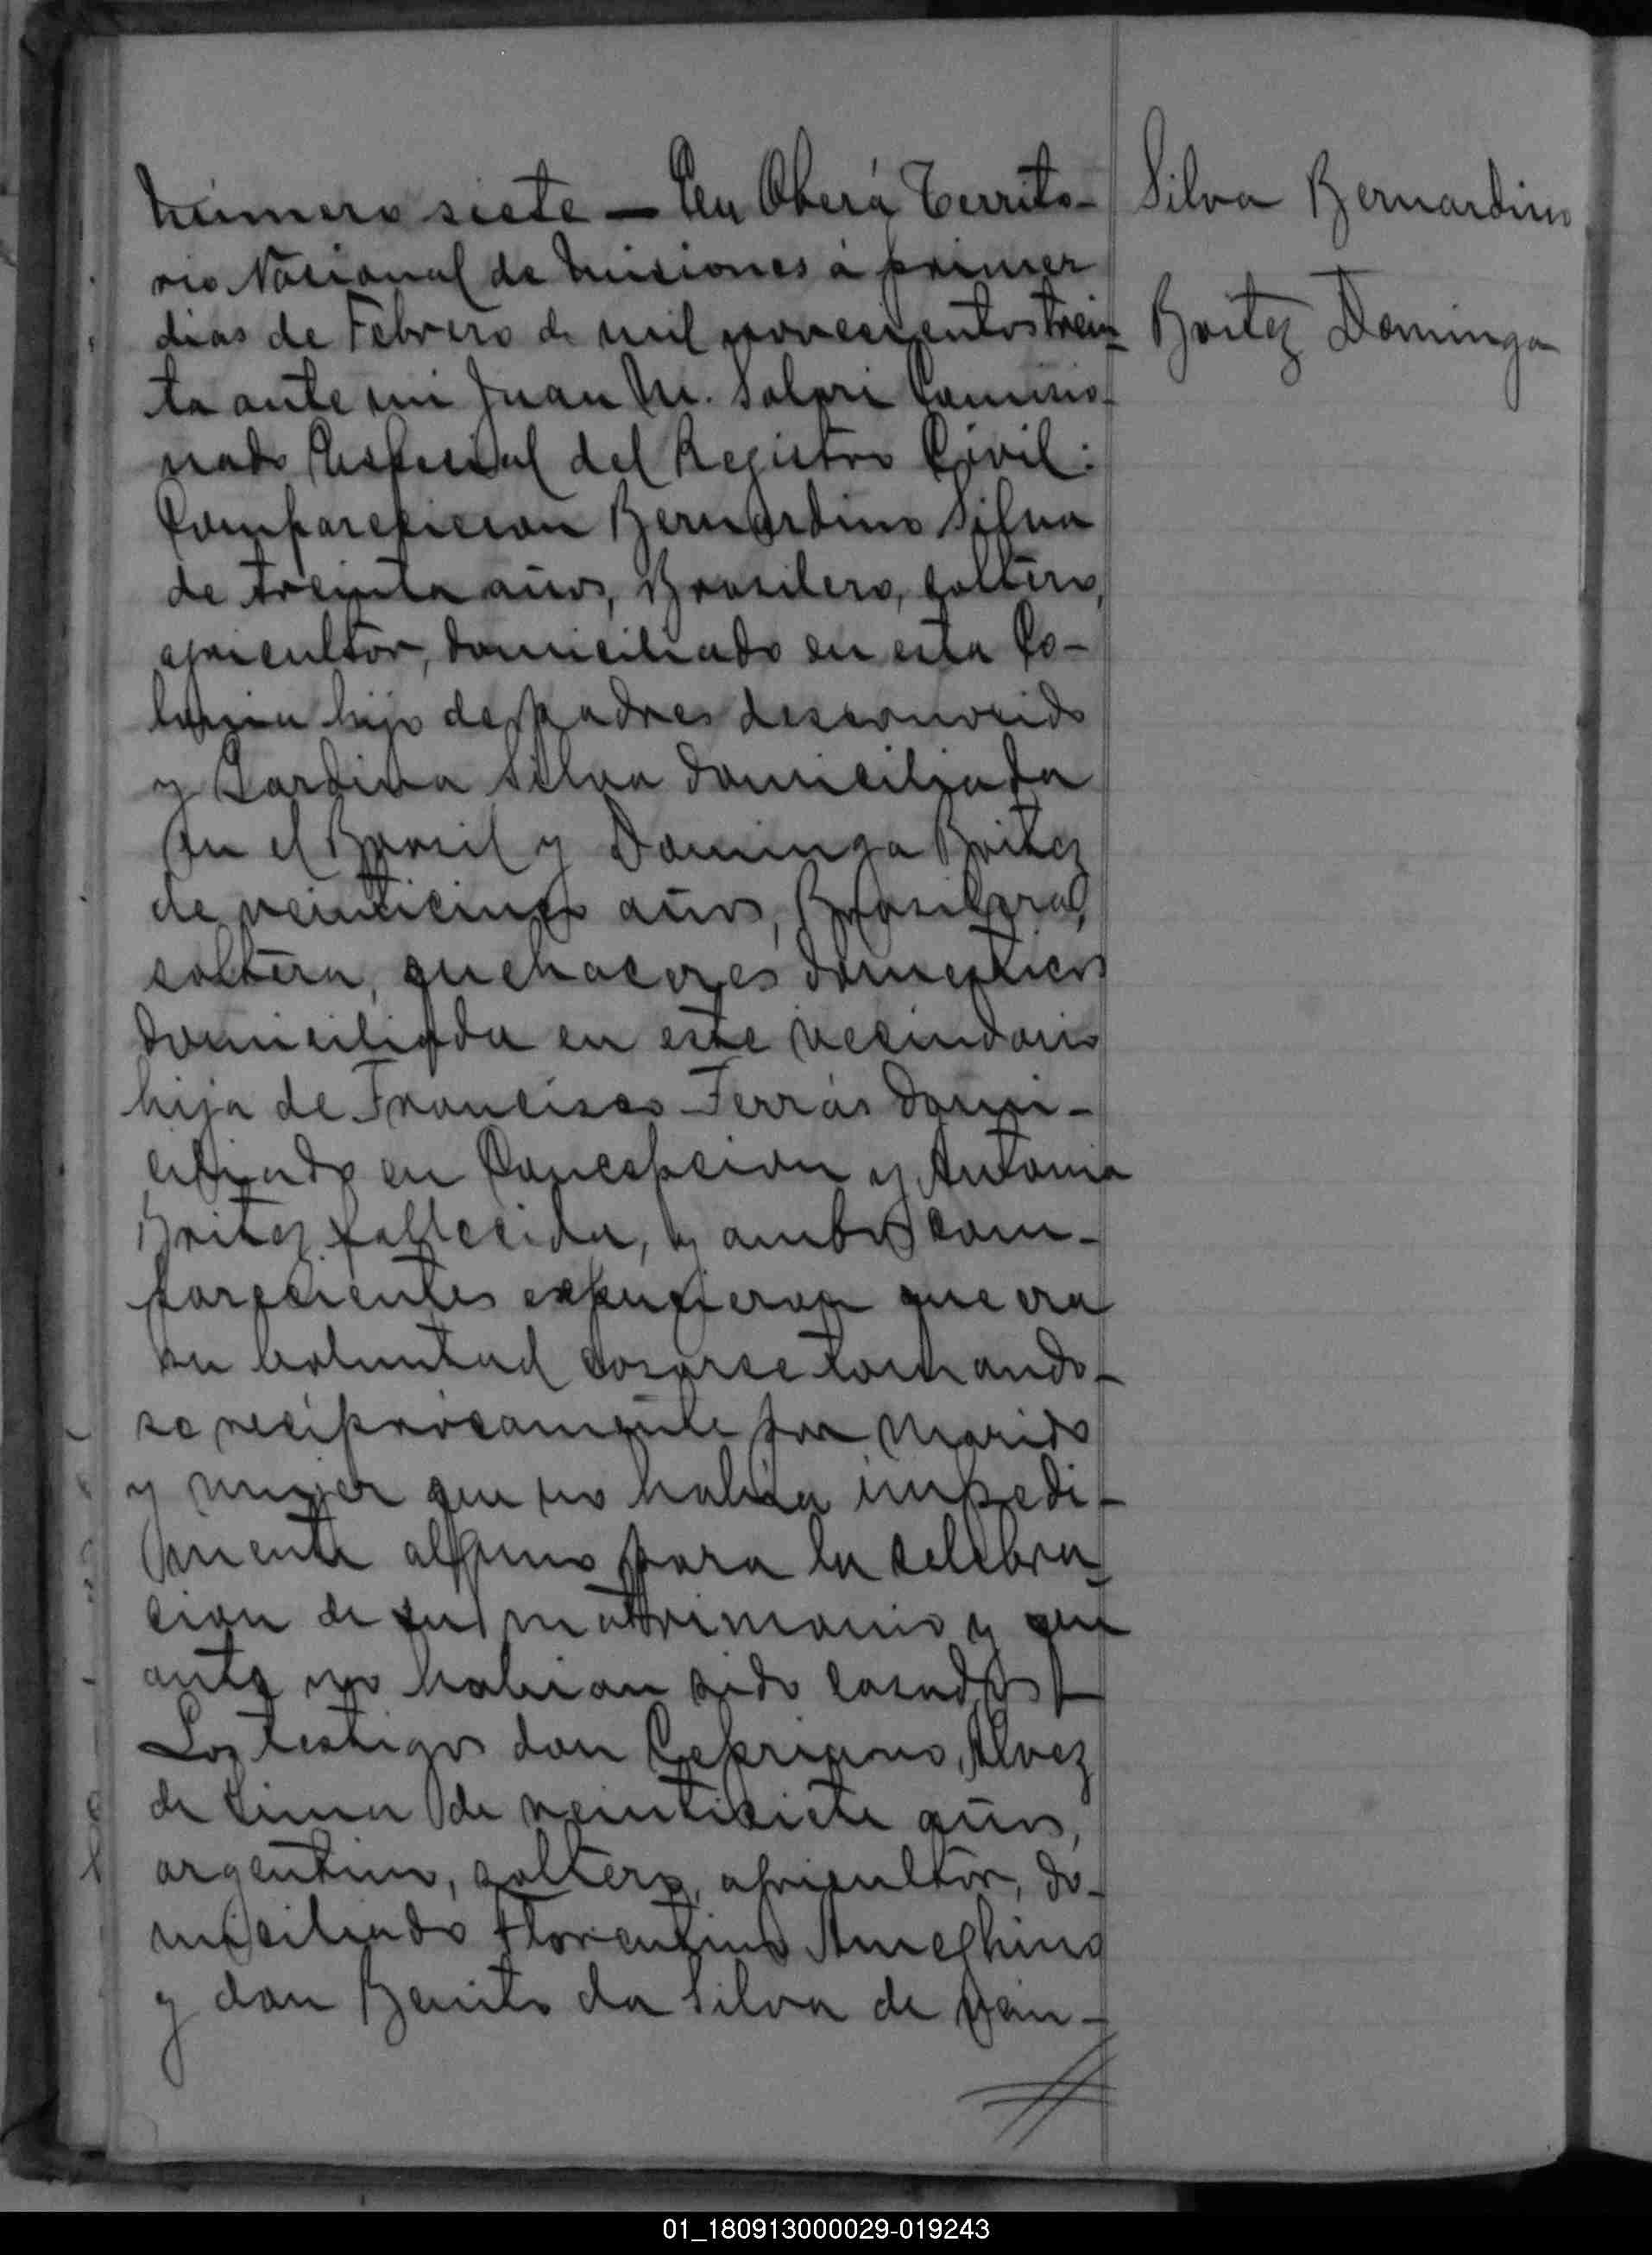 Número siete — En Oberá Territo-
rio Nacional de Misiones á primer
dias de Febrero de mil novecientos trein-
ta ante mi Juan M. Solari Comisio-
nado Especial del Registro Civil:
Comparecieron Bernardino Silva
de treinta años, Brasilero, soltero,
agricultor, domiciliado en esta Co-
lonia hijo de padres desconocido
y Silva domiciliada
en el Brasil y Dominga Britez
de veinticinco años, Brasilera,
soltera, quehaceres domesticos
domiciliada en este vecindario
hija de Francisco Ferrás domi-
ciliado en Concepcion y Antonia
Britez fallecida, y ambos com-
parecientes expusieron que era
su boluntad casarse tomando-
se reciprocamente por marido
y mujer que no habia impedi-
mento alguno para la selebra-
cion de su matrimonio y que
ante no habian sido casados
Los testigos don Cepriano Alvez
de Lima de veintisiete años,
argentino, soltero, agricultor, do-
miciliado Florentino Ameghino
y don Benito da Silva de vein-
Silva Bernardino
Britez Dominga
01_180913000029-019243